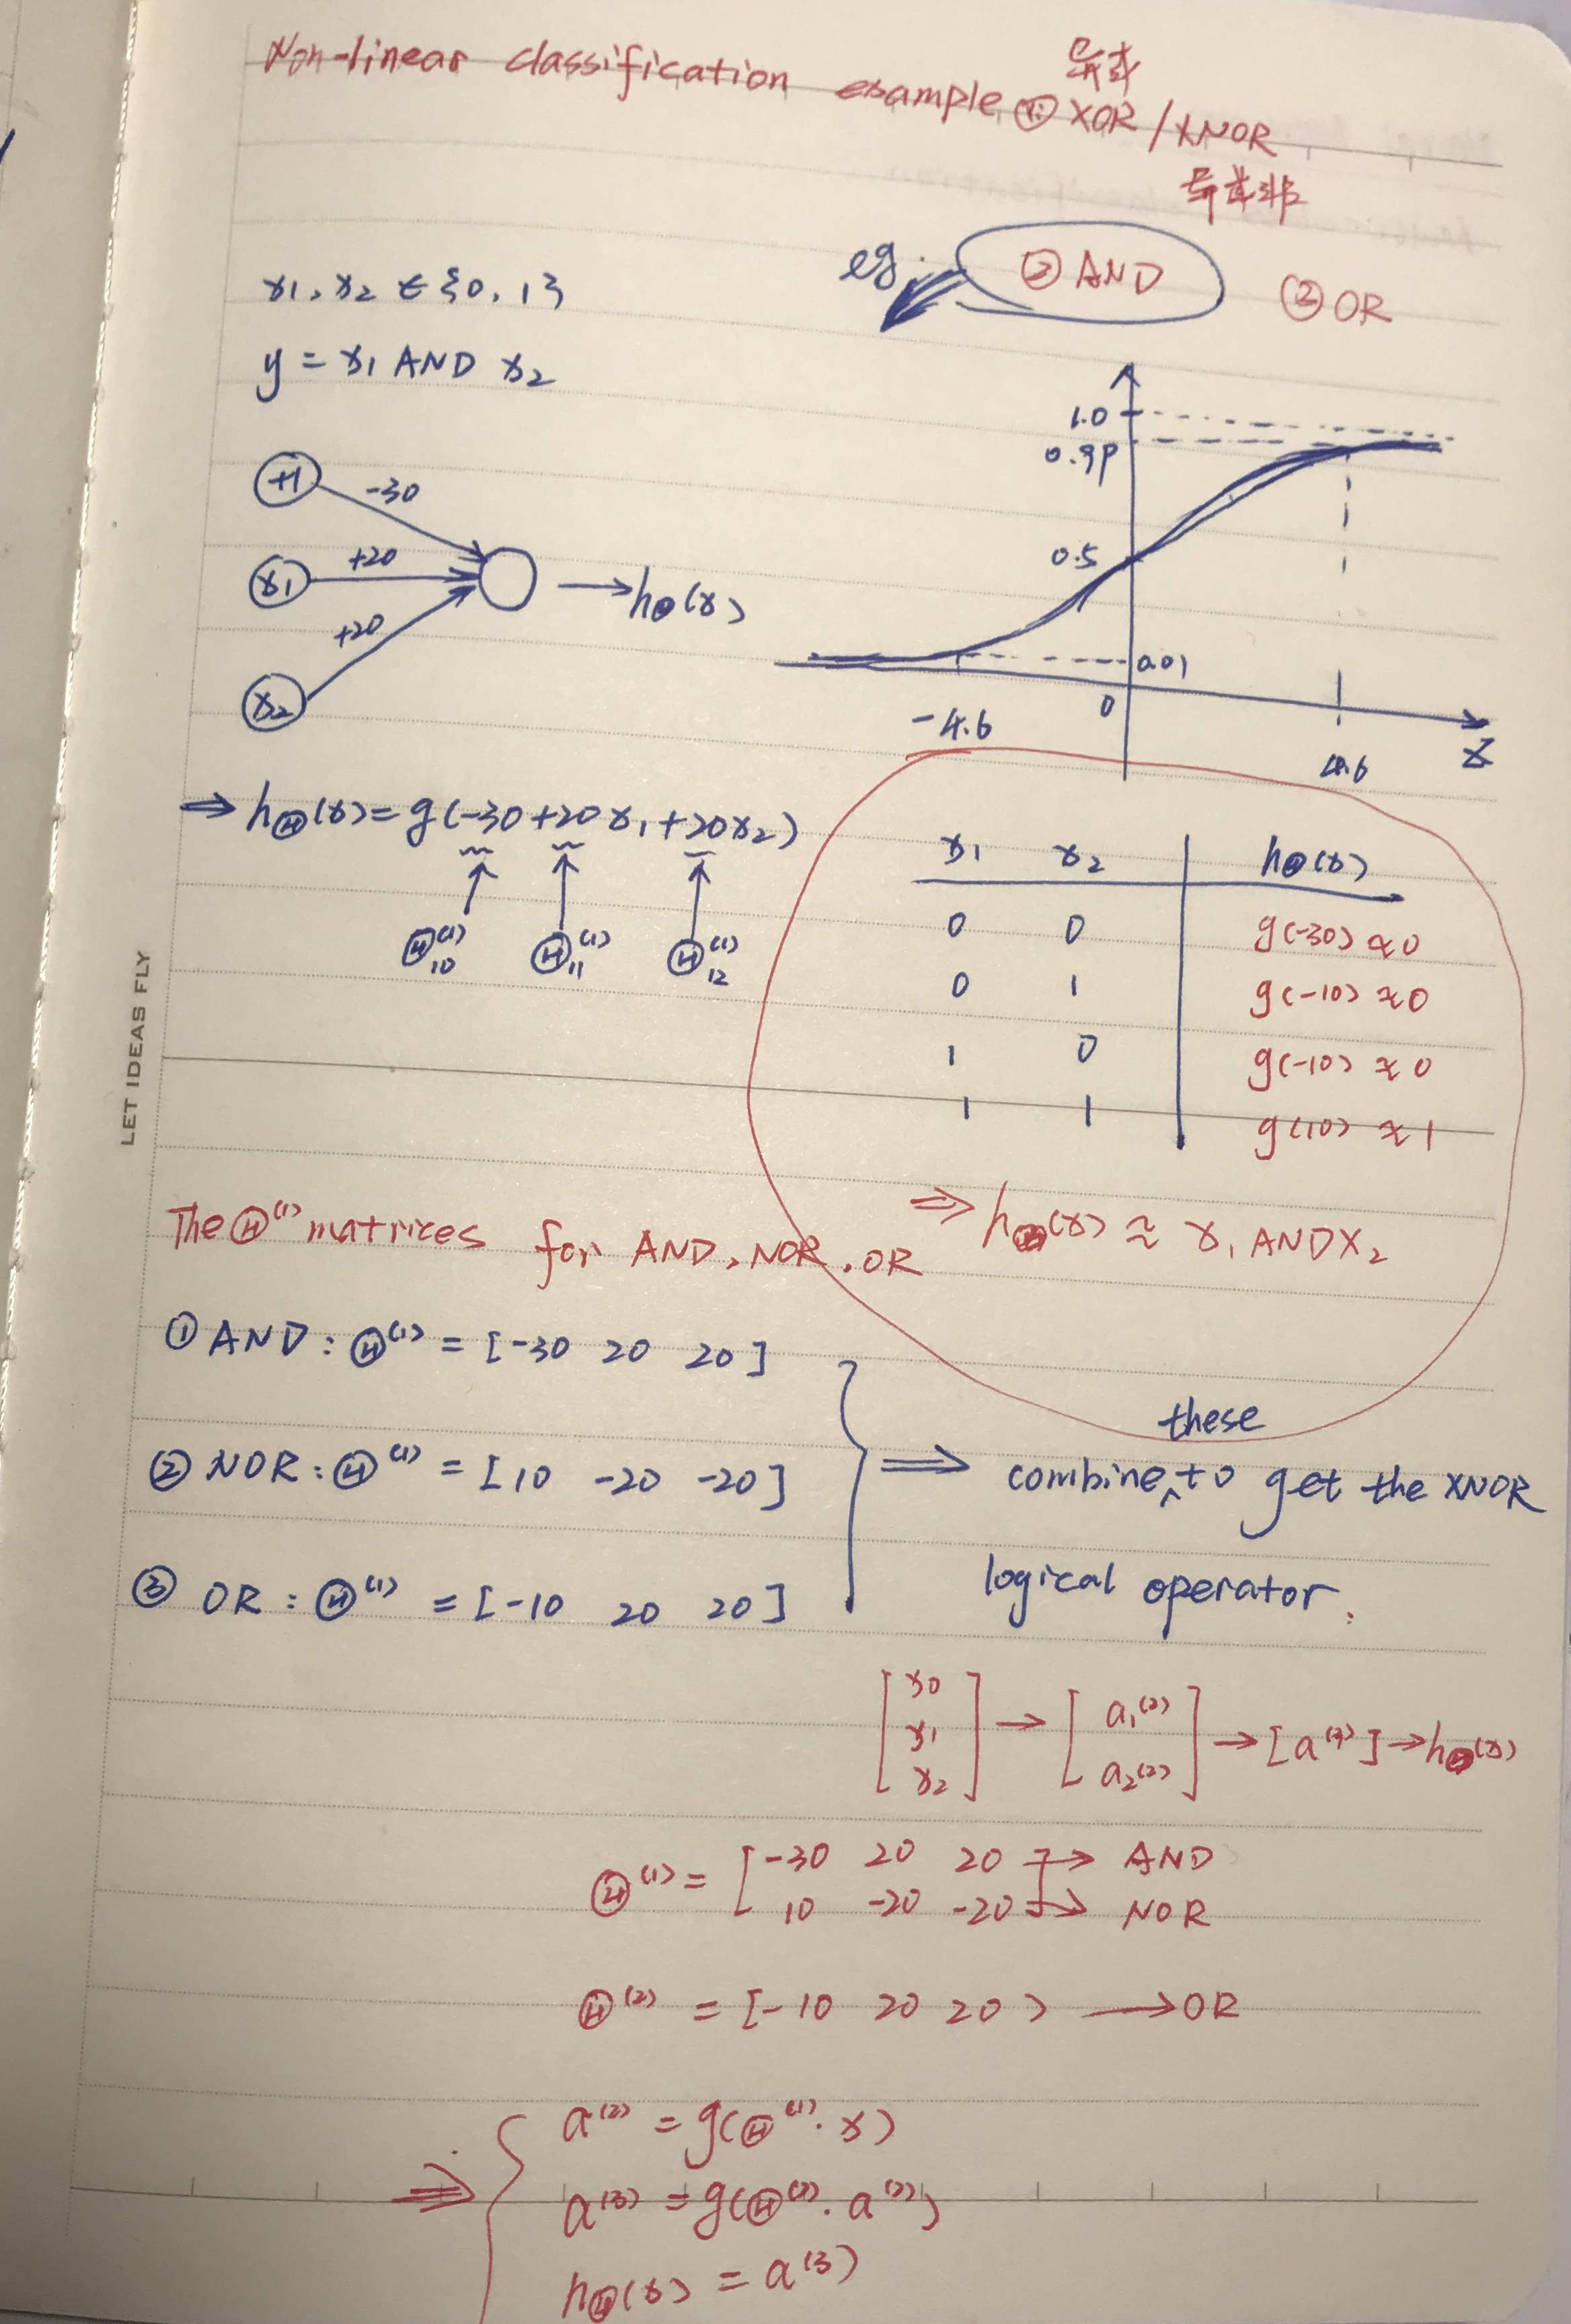 Non-linear classification example ① XOR / XNOR
异或
异或非
eg. ② AND ③ OR
x1, x2 ∈ {0, 1}
y = x1 AND x2
+1 -30
x1 +20
x2 +20
→ hΘ(x)
1.0
0.99
0.5
0.01
-4.6 0 4.6 z
⇒ hΘ(x) = g(-30 + 20x1 + 20x2)
Θ10^(1) Θ11^(1) Θ12^(1)
x1 x2 hΘ(x)
0 0 g(-30) ≈ 0
0 1 g(-10) ≈ 0
1 0 g(-10) ≈ 0
1 1 g(10) ≈ 1
⇒ hΘ(x) ≈ x1 AND x2
LET IDEAS FLY
The Θ^(1) matrices for AND, NOR, OR
① AND : Θ^(1) = [-30 20 20]
② NOR : Θ^(1) = [10 -20 -20]
③ OR : Θ^(1) = [-10 20 20]
⇒ combine these to get the XNOR
logical operator.
[x0 x1 x2] → [a1^(2) a2^(2)] → [a^(3)] → hΘ(x)
Θ^(1) = [-30 20 20 → AND
10 -20 -20] → NOR
Θ^(2) = [-10 20 20) → OR
⇒ { a^(2) = g(Θ^(1) · x)
a^(3) = g(Θ^(2) · a^(2))
hΘ(x) = a^(3)